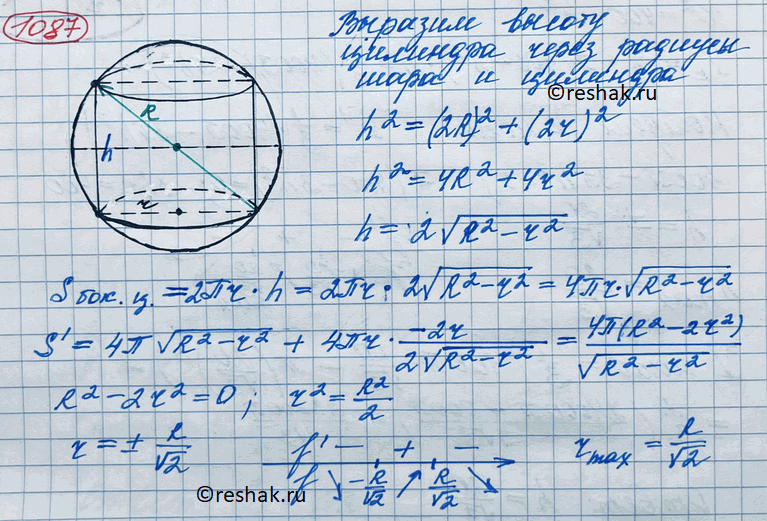 1087
Выразим высоту
цилиндра через радиусы
шара и цилиндра
©reshak.ru
h² = (2R)² + (2r)²
h² = 4R² + 4r²
h = 2√(R² − r²)
R
h
r
S бок. ц. = 2πr · h = 2πr · 2√(R² − r²) = 4πr · √(R² − r²)
S' = 4π√(R² − r²) + 4πr · −2r / 2√(R² − r²) = 4π(R² − 2r²) / √(R² − r²)
R² − 2r² = 0; r² = R²/2
r = ± R/√2
f' − + −
f ↘ −R/√2 ↗ R/√2 ↘
r max = R/√2
©reshak.ru